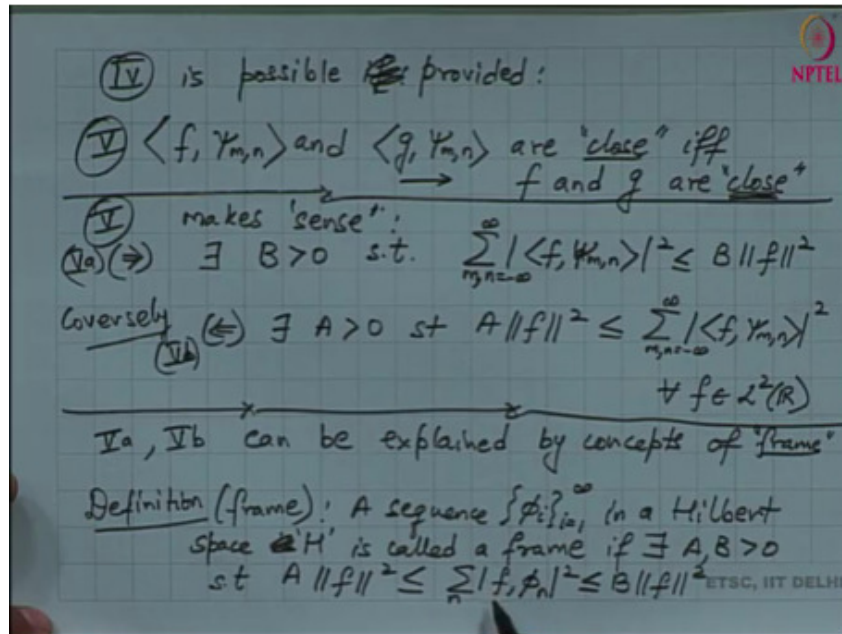 NPTEL
(IV) is possible provided:
(V) ⟨f, ψ_{m,n}⟩ and ⟨g, ψ_{m,n}⟩ are "close" iff
f and g are "close"
(V) makes "sense":
(Va) (⇒) ∃ B>0 s.t. ∑_{m,n=-∞}^{∞} |⟨f, ψ_{m,n}⟩|² ≤ B ||f||²
Coversely (Vb) (⇐) ∃ A>0 st A ||f||² ≤ ∑_{m,n=-∞}^{∞} |⟨f, ψ_{m,n}⟩|²
∀ f ∈ L²(ℝ)
Va, Vb can be explained by concepts of "frame"
Definition (frame): A sequence {ϕi}_{i=1}^{∞} in a Hilbert
space 'H' is called a frame if ∃ A, B>0
s.t A ||f||² ≤ ∑_n |f, ϕ_n|² ≤ B ||f||²
ETSC, IIT DELHI